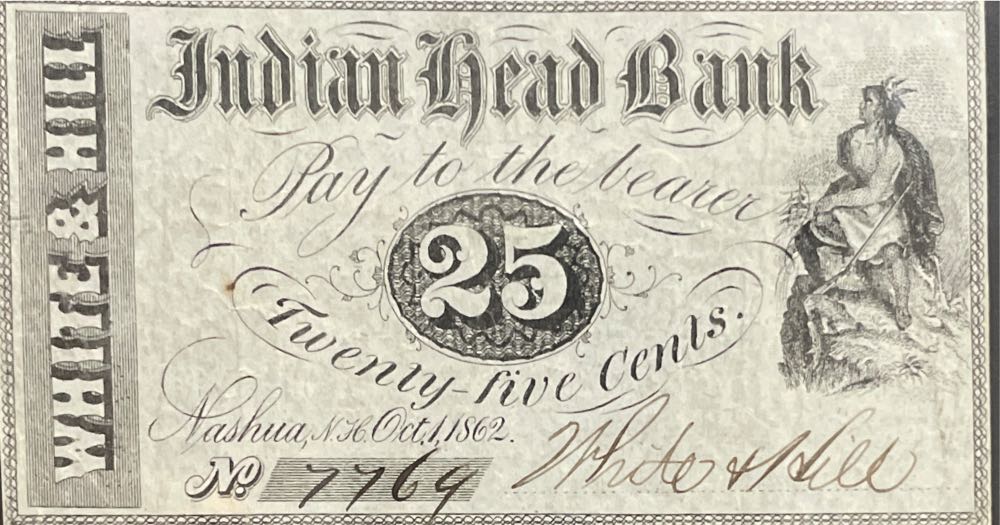 WHITE & HILL
Indian Head Bank
Pay to the bearer
25
Twenty-five Cents.
Nashua, N.H. Oct. 1, 1862.
No 7769
White & Hill